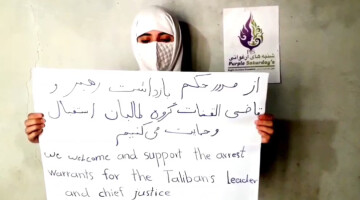 شنبه های ارغوانی
Purple Saturday's
از صدور حکم بازداشت رهبر و
قاضی القضات گروه طالبان استقبال
و حمایت می‌کنیم
we welcome and support the arrest
warrants for the Taliban's leader
and chief justice